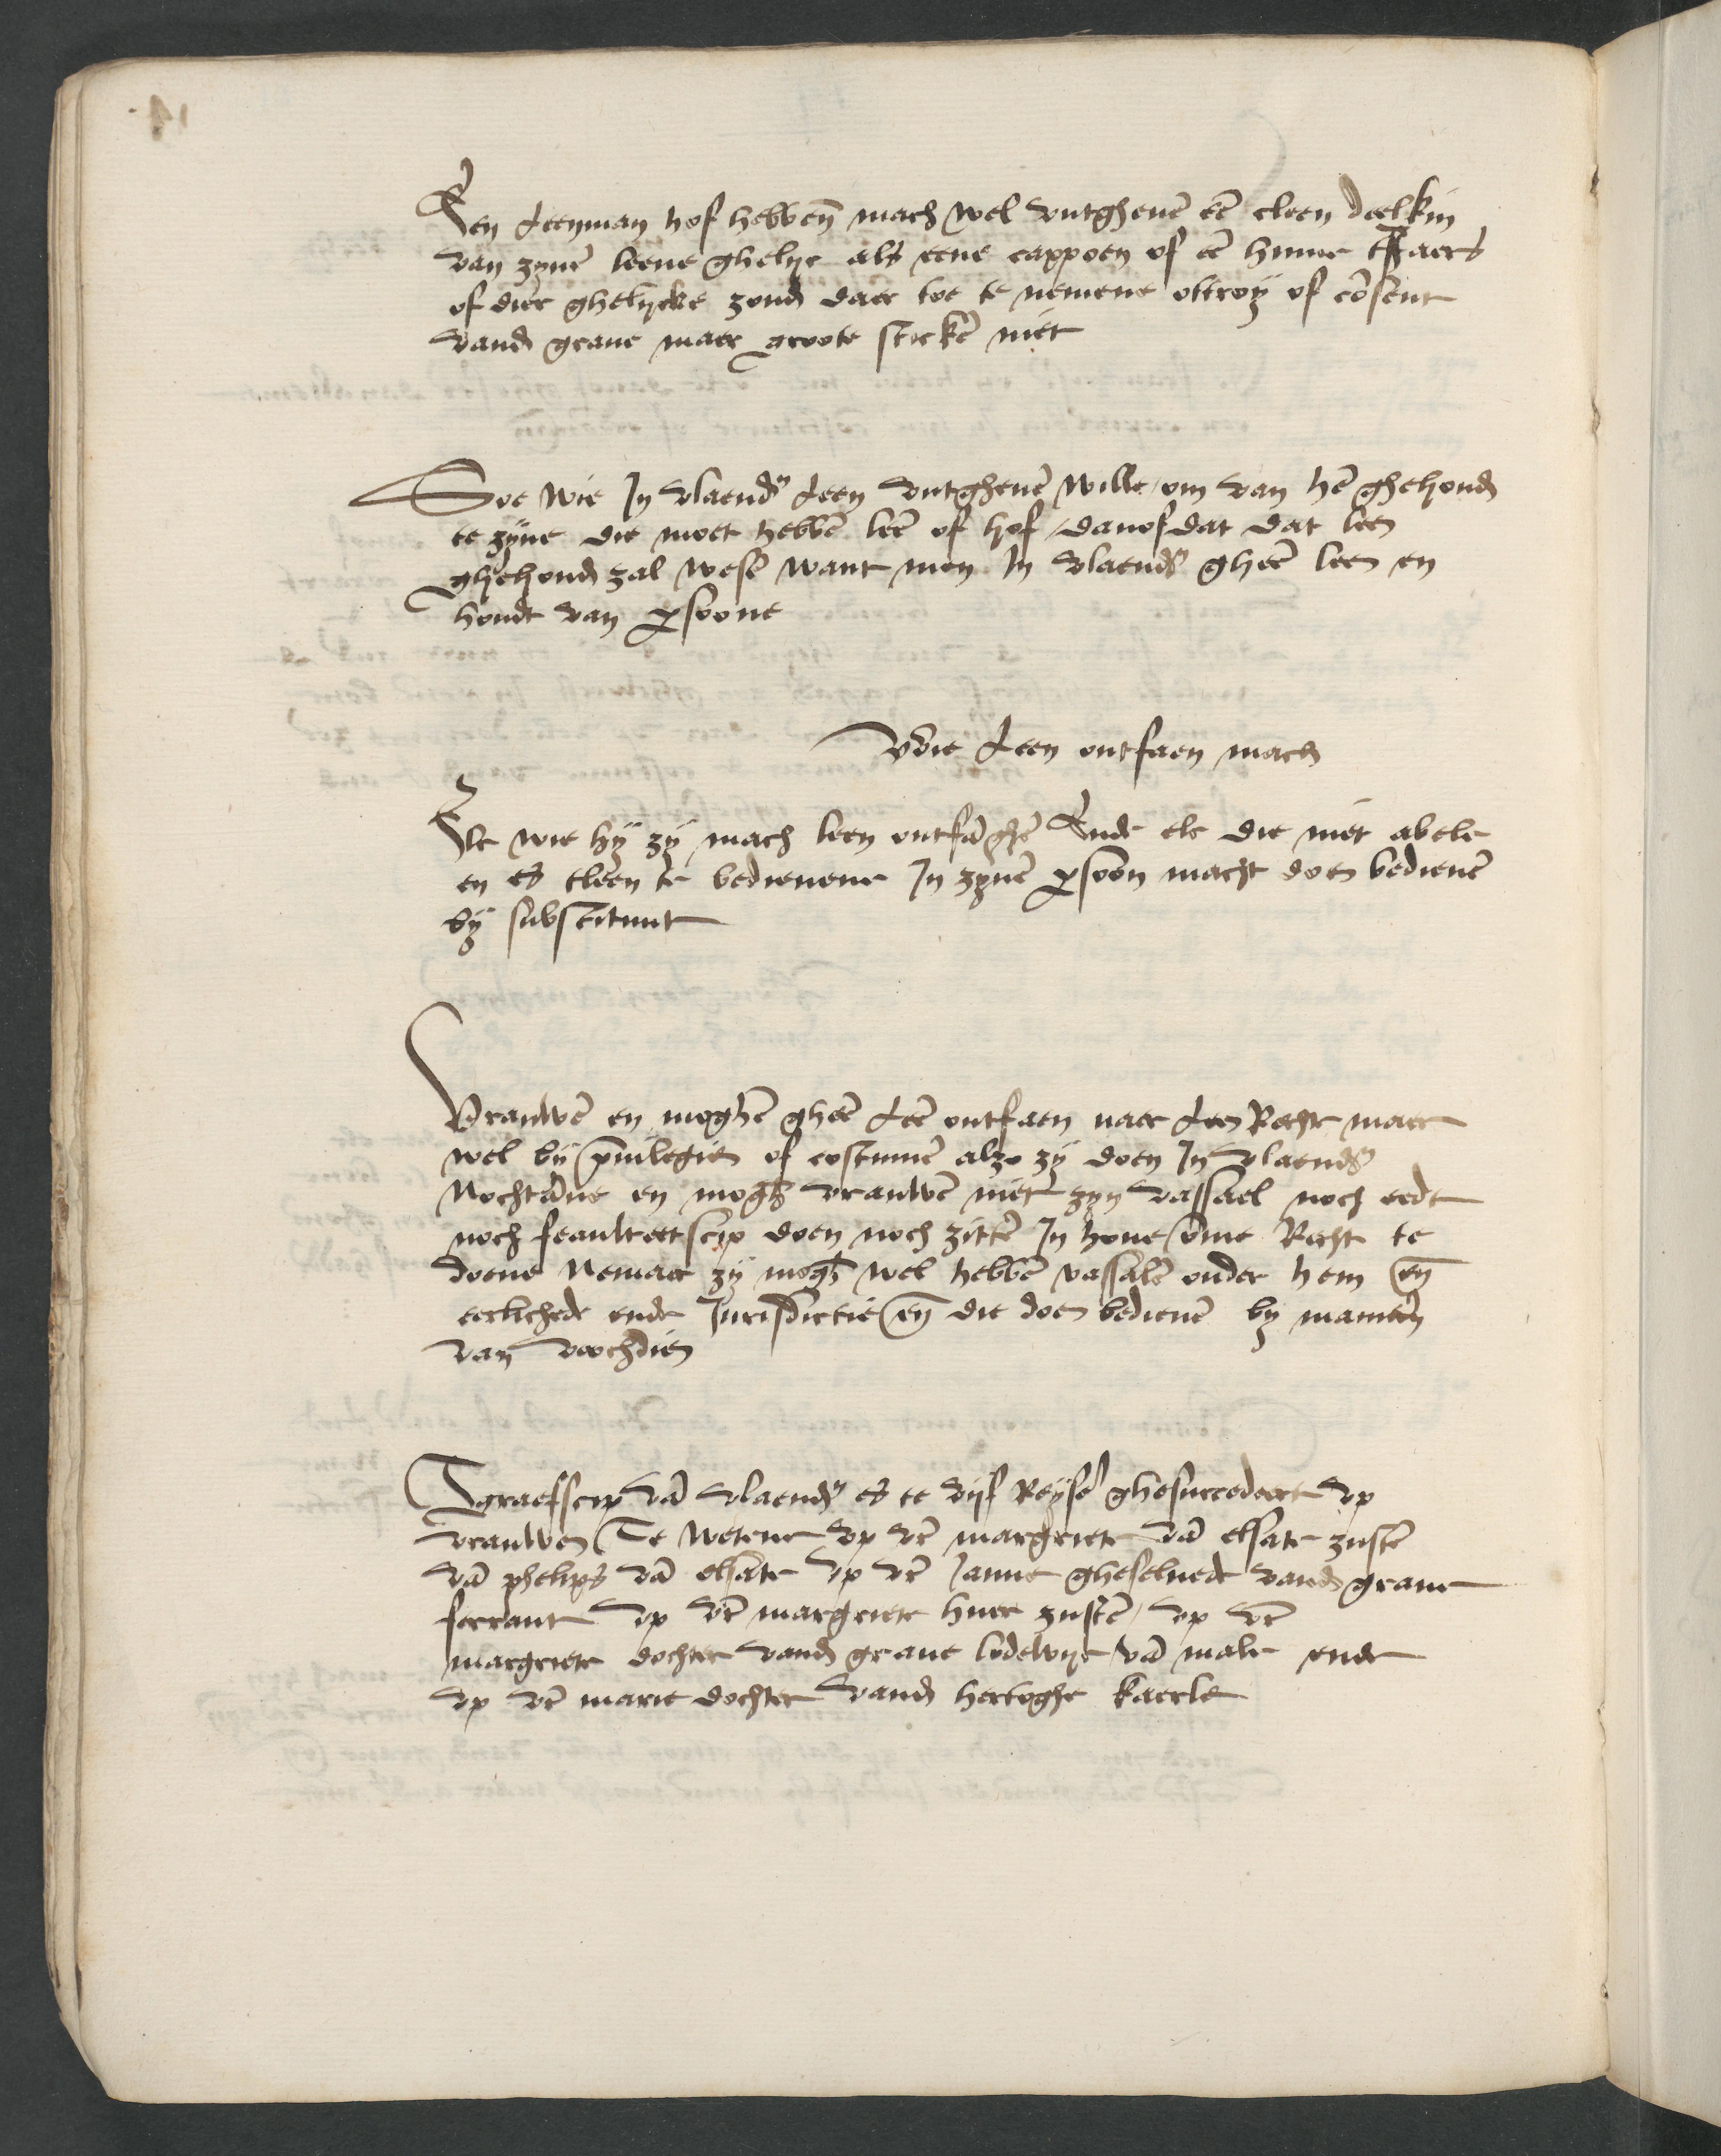 Een Leenman hof hebben̄ mach wel vutgheuē eē cleen deelkin
van zynē leene ghelyc als eene cappoen of eē hinne tsjaers
of dier ghelycke zond daer toe te nemene ottroy of cōsent
vand graue maer groote stickē niet
Soe wie In vlaendr Leen vutgheuē wille om van hē ghehoud
te zyne die moet hebbē leē of hof danof dat dat leen
ghehoud zal wesē want men In vlaendr gheē leen en
houdt van psoone
Wie Leen ontfaen mach
Elc wie hy zy mach leen ontfāghē Ende elc die niet abele
en es tleen te bedienene In zynē psoon macht doen bedienē
by substituut
Vrauwē en moghē gheē Leē ontfaen naer Leen Recht maer
wel by pūilegien of costumē alzo zy doen In vlaendr
Nochtāne en mogh vrauwē niet zyn vassael noch eedt
noch feaulteetscip doen noch zittē In houe ōme Recht te
doene Nemaer zy mogh wel hebbē vassalē onder hem en̄
eerlichede ende Jurisdictie en̄ die doen bedienē by maniern
van voochdien
Tgraefscip vā vlaendr es te vyf Reysē ghesuccedeert vp
vrauwen Te wetene vp vr̄ margriete vā elsate zustr̄
vā phelips vā elsate vp vr̄ Janne gheselnede vand graue
ferrant vp vr̄ margriete huer zustr̄ vp vr̄
margriete dochter vand graue lodewyc vā male ende
vp vr̄ marie dochter vand hertoghe kaerle